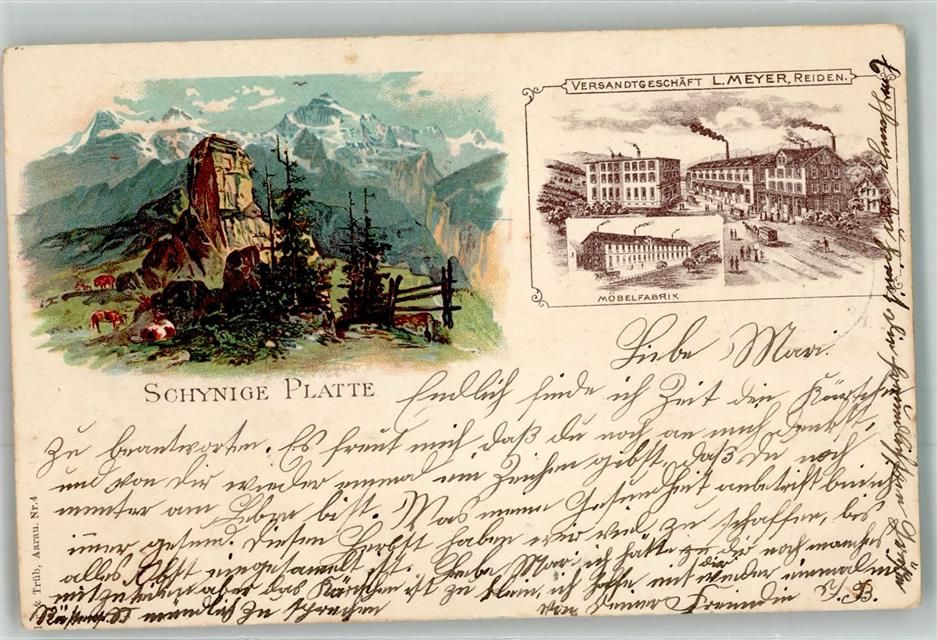 VERSANDTGESCHÄFT L. MEYER, REIDEN.
MÖBELFABRIK
SCHYNIGE PLATTE
Liebe Mari.
Endlich finde ich Zeit dein Kärtchen
zu beantworten. Es freut mich daß du noch an mich denkst,
und von dir wieder einmal ein Zeichen gibst, daß Du noch
munter am Leben bist. Was meine Gesundheit anbetrift bin
imer gesund. Diesen Herbst haben wir viel zu schaffen, bis
alles Obst eingesamelt ist. Liebe Mari, ich hätte zu dir noch manches
mitzuteilen aber das Kärtchen ist zu klein, ich hoffe mit dir wieder einmal
mündlich zu sprechen von Deiner Freundin B.
Trüb, Aarau. Nr. 4